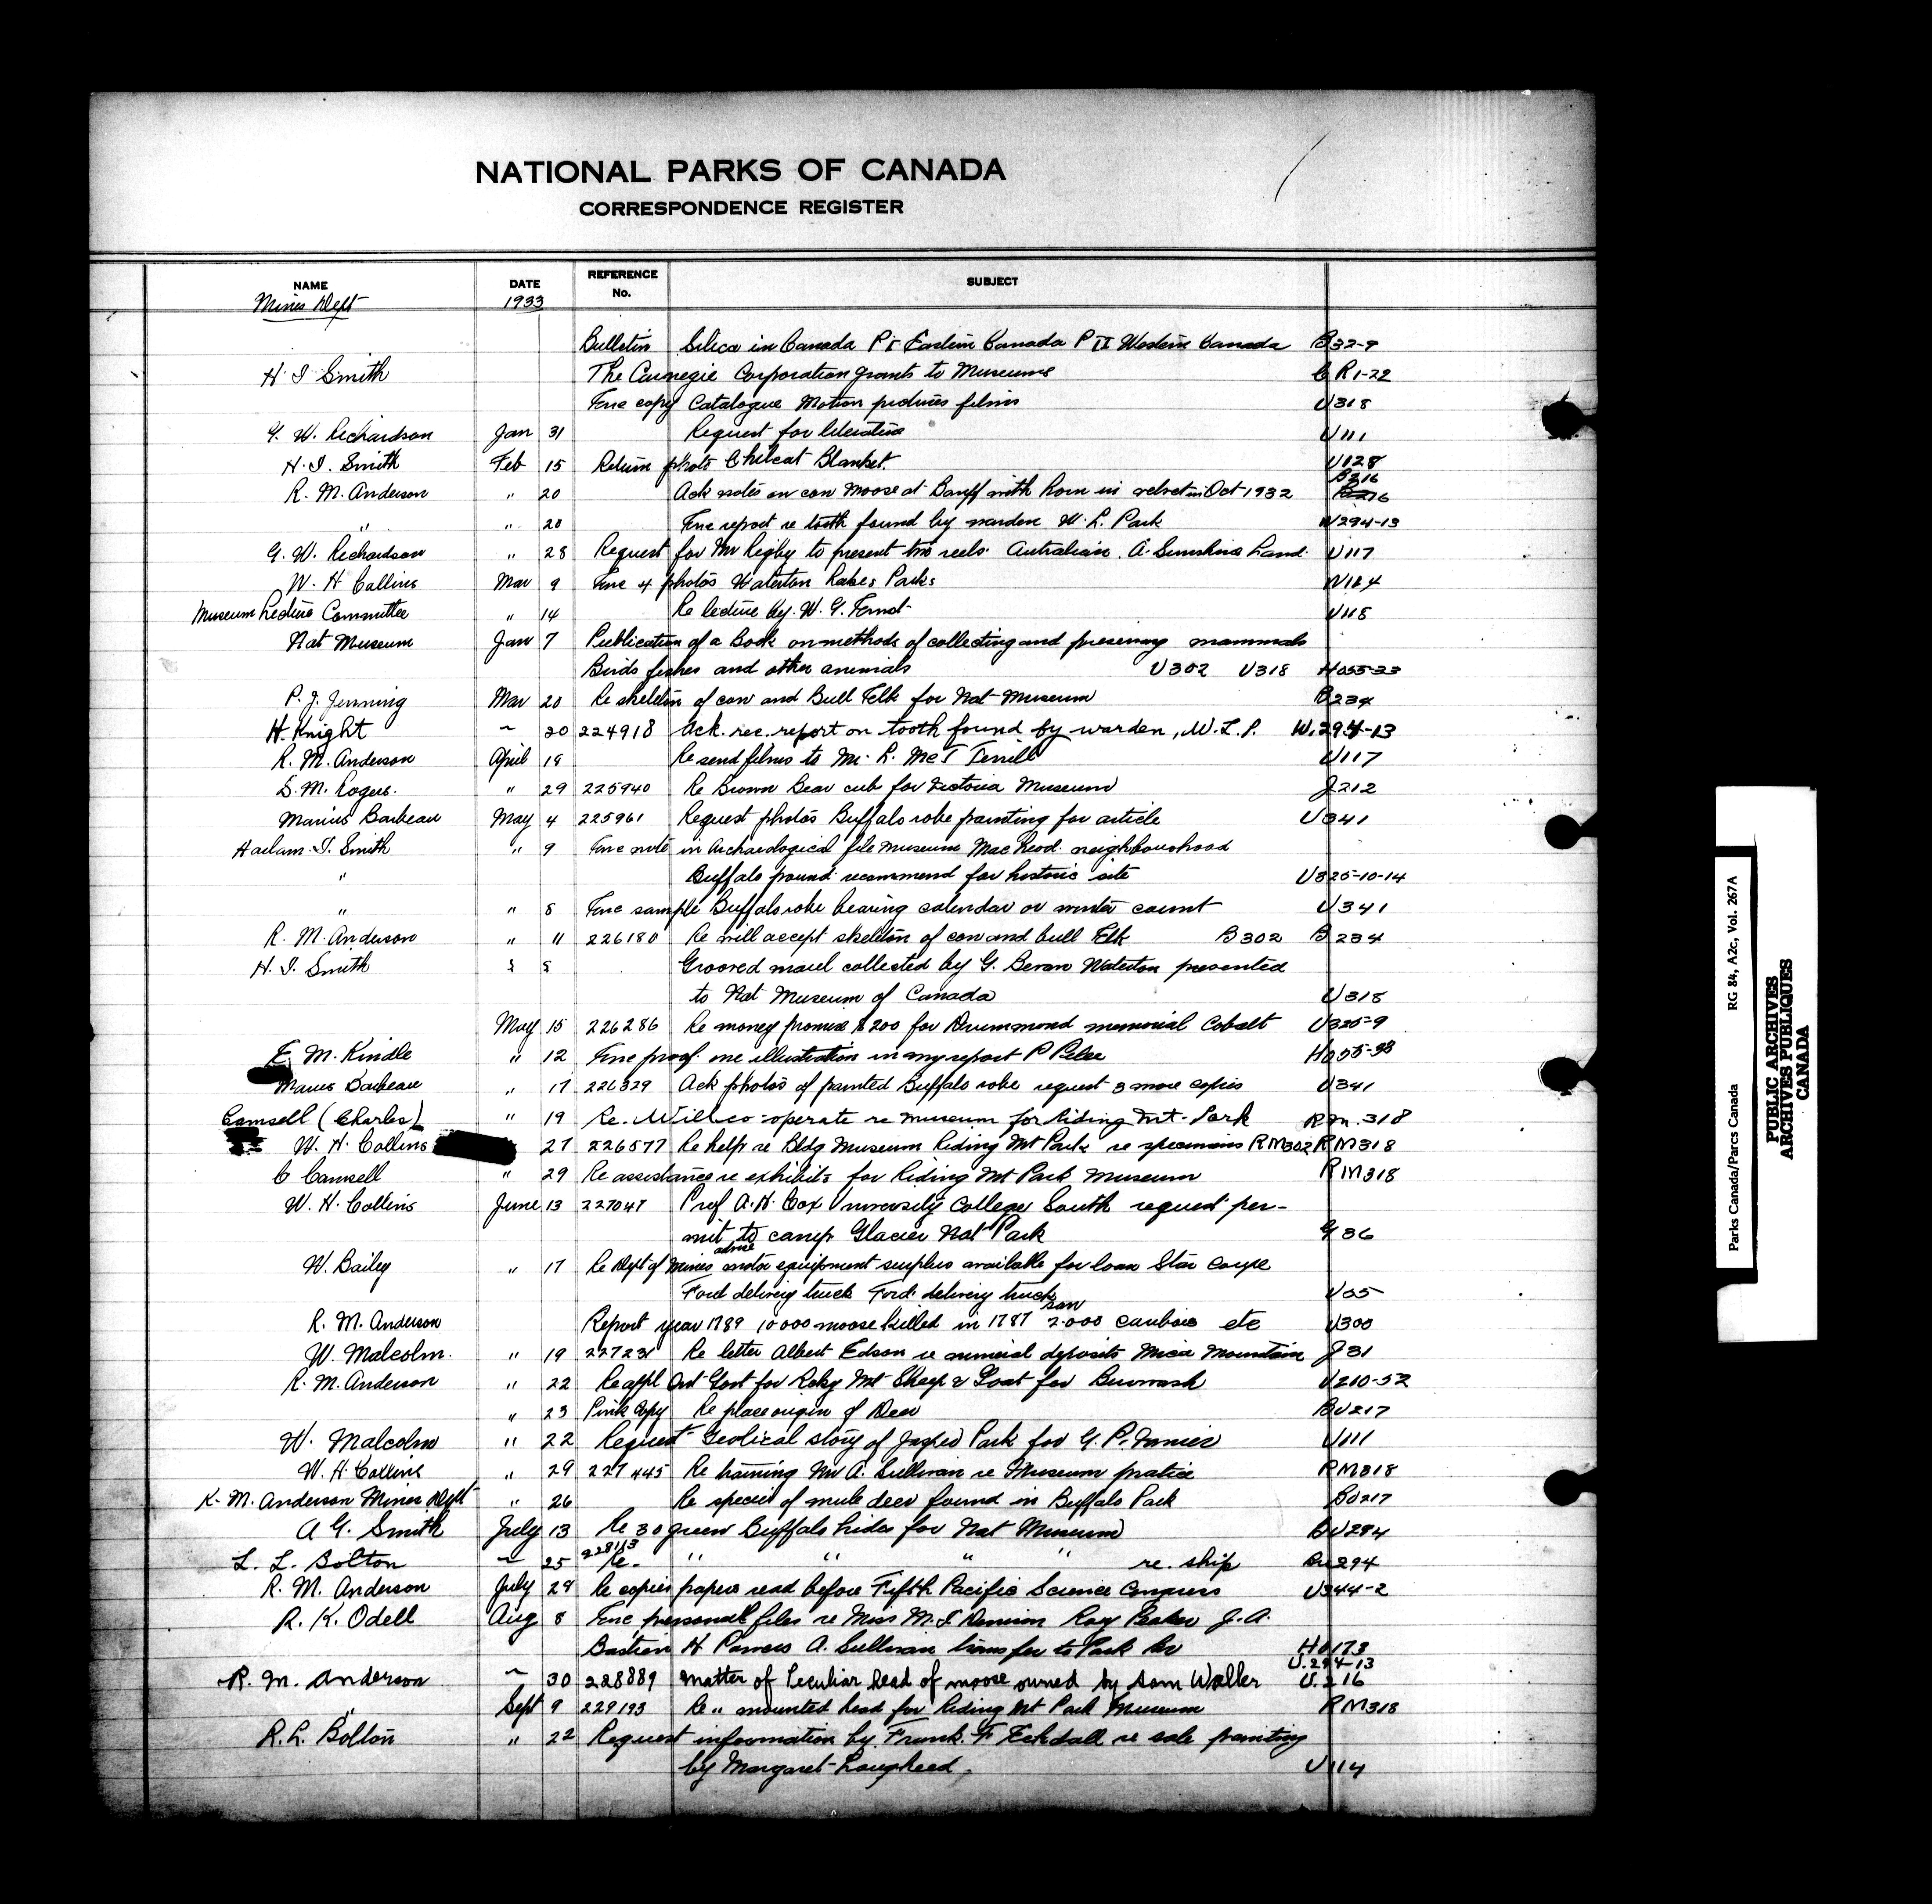 NATIONAL PARKS OF CANADA
CORRESPONDENCE REGISTER
NAME DATE REFERENCE No. SUBJECT
Mines Dept 1933
Bulletin Silica in Canada P I Eastern Canada P II Western Canada B32-9
H. I Smith The Carnegie Corporation grants to Museums R1-22
Enc copy Catalogue Motion pictures films U318
G. W. Richardson Jan 31 Request for literature U111
H. I. Smith Feb 15 Return photo Chilcat Blanket. U128
B216
R. M. Anderson " 20 Ack notes on cow moose at Banff with horn in velvet in Oct 1932
" " 20 Enc report re tooth found by warden W. L. Park W294-13
G. W. Richardson " 28 Request for Mr Rigby to present two reels. Autralian. A. Sunshine Land. U117
W. H Collins Mar 9 Enc 4 photos Waterton Lakes Park
Museum Lecture Committee " 14 Re lecture by. W. G. U118
Nat Museum Jan 7 Publication of a Book on methods of collecting and preserving mammals
Birds fishes and other animals U302 U318 H055-33
P. J. Jenning Mar 20 Re skeleton of cow and Bull Elk for Nat Museum B234
H. Knight ~ 20 224918 Ack. rec. report on tooth found by warden, W. L. P. W.294-13
R. M. Anderson April 18 Re send films to Mr. L. McI Terrill U117
S. M. Rogers. " 29 225940 Re Brown Bear cub for Victoria Museum J212
Marius Barbeau May 4 225961 Request photos Buffalo robe painting for article U341
Harlam. I. Smith " 9 Enc note in Archaeological file Museum Mac Leod. neighbourhood
" Buffalo pound recommend for historic site U325-10-14
" " 8 Enc sample Buffalo robe bearing calendar or winter count U341
R. M. Anderson " 11 226180 Re will accept skeleton of cow and bull Elk B302 B234
H. I. Smith 5 Grooved maul collected by G. Bevan Waterton presented
to Nat Museum of Canada U318
May 15 226286 Re money promise $200 for Drummond memorial Cobalt U325-9
E. M. Kindle " 12 Enc proof. one illustration in my report P Pelee H055-33
Marius Barbeau " 17 226329 Ack photos of painted Buffalo robe request 3 more copies U341
Camsell (Charles) " 19 Re. Will co-operate re museum for Riding Mt. Park R.M. 318
W. H. Collins 27 226577 Re help re Bldg Museum Riding Mt Park re specimens RM302 RM318
C Camsell " 29 Re assistance re exhibits for Riding Mt Park Museum RM318
W. H. Collins June 13 227047 Prof A. H. Cox University College South request per-
mit to camp Glacier Nat Park G36
W. Bailey " 17 Re Dept of Mines advise motor equipment surplus available for loan Star coupe
Ford delivery truck Ford. delivery truck U05
R. M. Anderson Report year 1789 10000 moose killed in 1787 2000 caribou etc U300
W. Malcolm. " 19 227231 Re letter Albert Edson re mineral deposits Mica Mountain J31
R. M. Anderson " 22 Re appl Ont Govt for Rcky Mt Sheep & Goat for Burwash U210-52
" 23 Pink Copy Re place origin of Deer BU217
W. Malcolm " 22 Request Geolical story of Jasper Park for G. P. U111
W. H. Collins " 29 227445 Re training Mr A. Sullivan re Museum pratice RM318
R. M. Anderson Mines Dept " 26 Re species of mule deer found in Buffalo Park BU217
A G. Smith July 13 Re 30 green Buffalo hides for Nat Museum BU294
L. L. Bolton ~ 25 228113 Re. " " " " re. ship Bu294
R. M. Anderson July 28 Re copies papers read before Fifth Pacific Science Congress U344-2
R. K. Odell Aug 8 Enc personal files re Miss M. I Roy J. A.
Bastien H Powers A. Sullivan transfer to Park Br H0173
U.294-13
R. M. Anderson ~ 30 228889 Matter of Peculiar head of moose owned by Sam Waller U.216
" Sept 9 229193 Re " mounted head for Riding Mt Park Museum RM318
R. L. Bolton " 22 Request information by. Frank. F Eckdall re sale painting
by Margaret Lougheed. U114
Parks Canada/Parcs Canada RG 84, A2c, Vol. 267A
PUBLIC ARCHIVES
ARCHIVES PUBLIQUES
CANADA